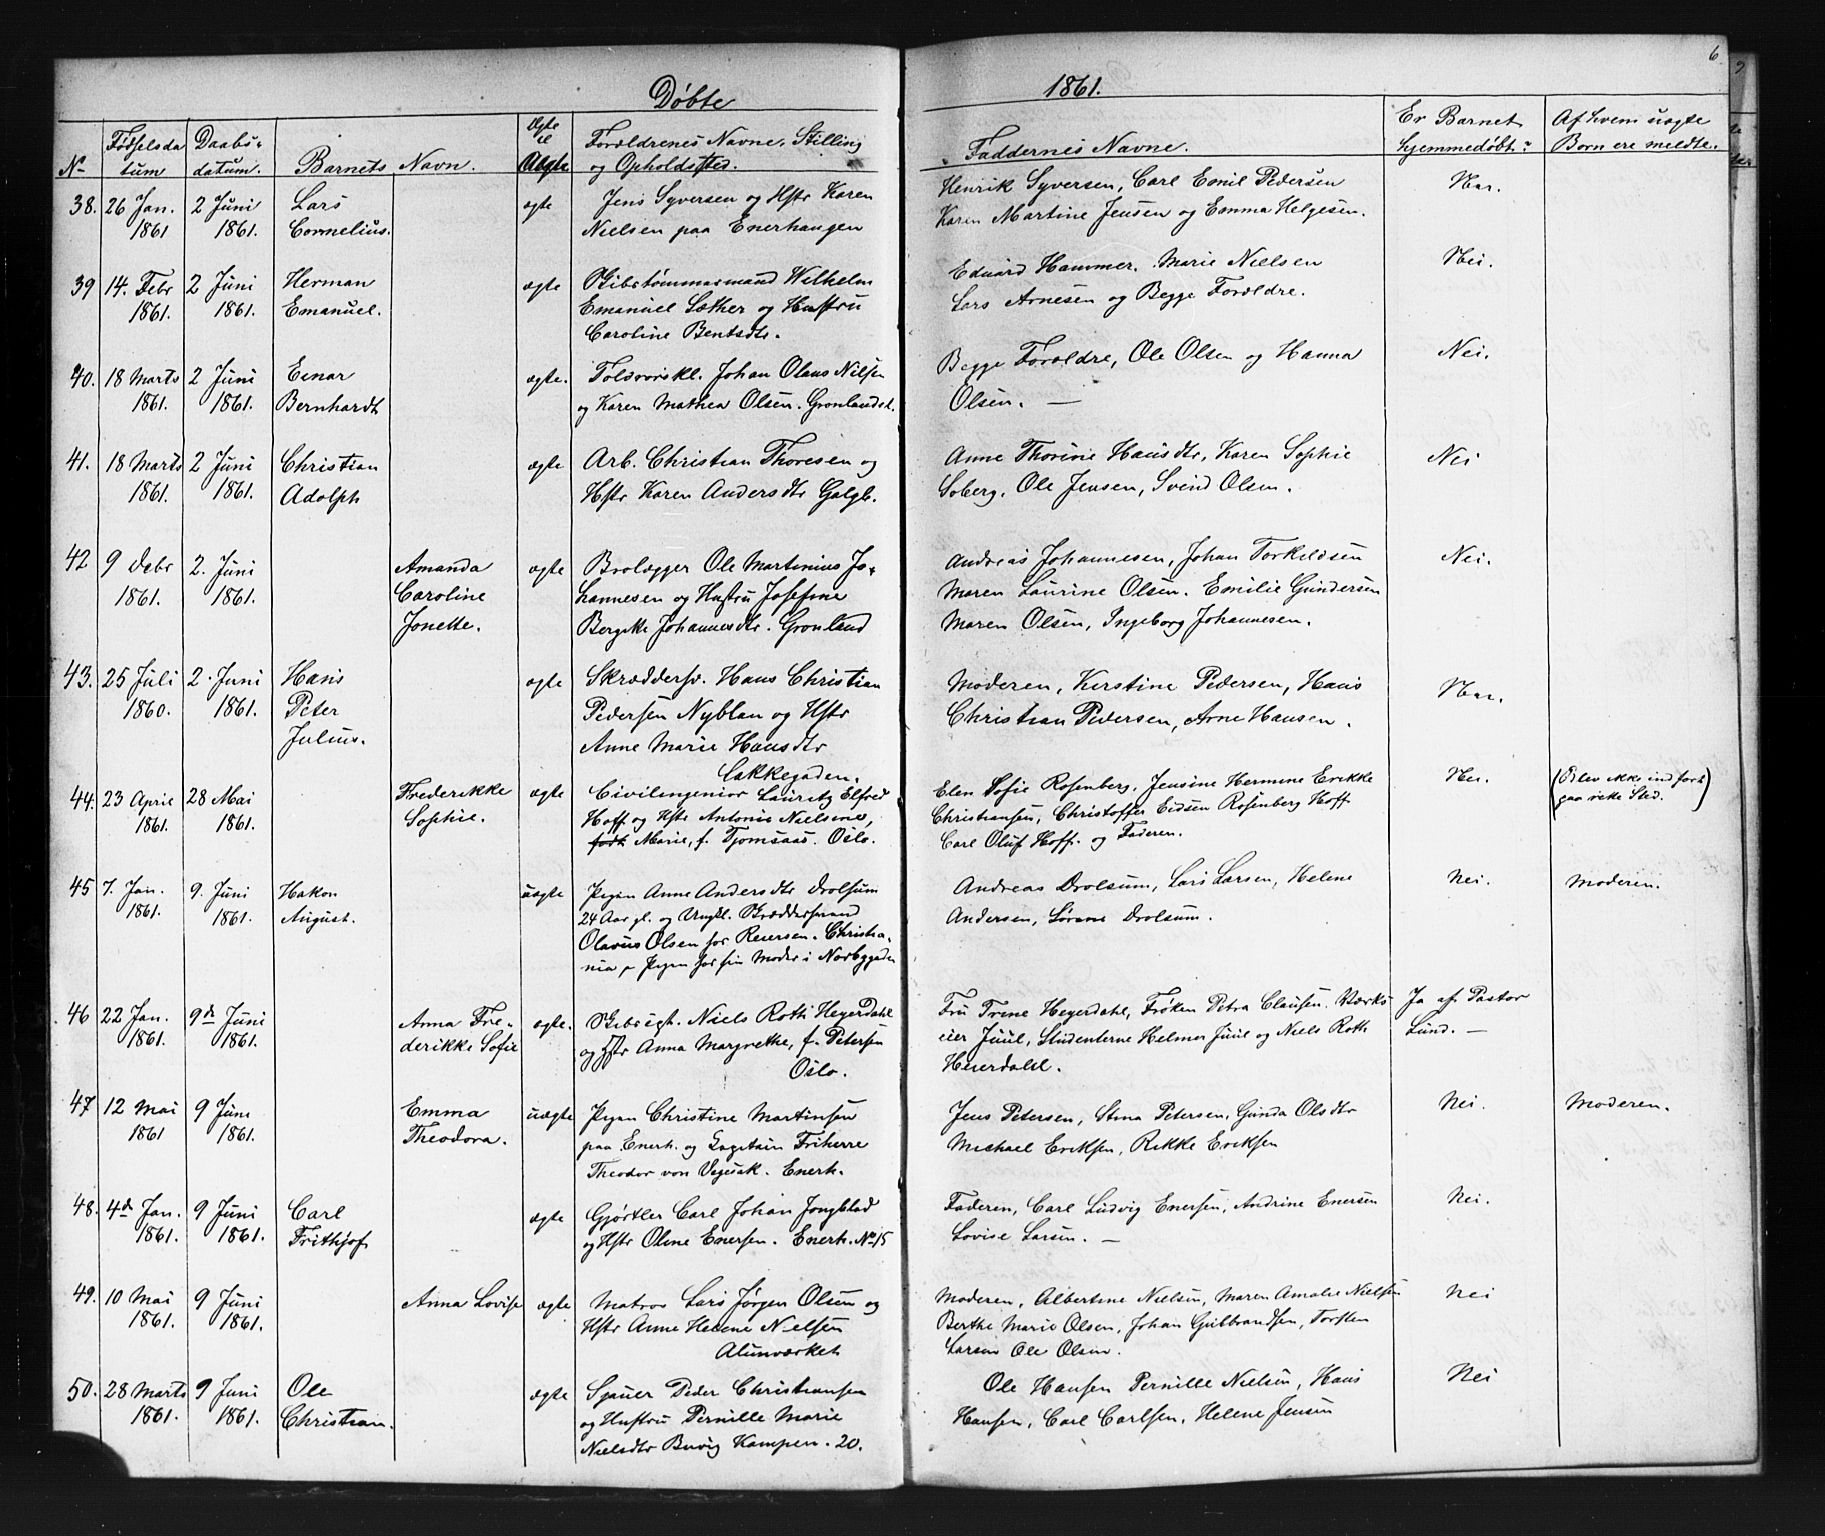 6
Døbte
1861.
No
Fødselsdatum
Daabsdatum.
Barnets Navn.
Ægte el Uægte
Forældrenes Navne, Stilling og Opholdssted.
Faddernes Navne.
Er Barnet hjemmedøbt?
Af hvem uægte Børn ere meldte.
38. 26 Jan. 1861 2 Juni 1861. Lars Cornelius. ægte
Jens Syversen og Hstr Karen
Nielsen paa Enerhaugen
Henrik Syversen, Carl Emil Pedersen
Karen Martine Jensen og Emma Helgesen.
39 14. Febr 1861. 2 Juni 1861. Herman Emanuel. ægte
Skibstømmermand Wilhelm
Emanuel Sæther og Hustru
Caroline Bentsdtr.
Eduard Hammer. Marie Nielsen
Lars Arnesen og Begge Forældre.
Nei.
40. 18 Marts 1861. 2 Juni 1861. Einar Bernhardt ægte.
Toldrorskl. Johan Olaus Nilsen
og Karen Mathea Olsen. Grønlandst.
Begge Forældre, Ole Olsen og Hanna
Olsen. —
Nei.
41. 18 Marts 1861. 2 Juni 1861. Christian Adolph ægte
Arb. Christian Thoresen og
Hstr Karen Andersdtr Galgb.
Anne Thorine Hansdtr, Karen Sophie
Soberg, Ole Jensen, Svend Olsen.
Nei
42 9 Febr 1861. 2. Juni 1861. Amanda Caroline Jonette. ægte
Brolægger Ole Martinius Jo-
hannesen og Hustru Josefine
Johannesdtr. Grønland
Andreas Johannesen, Johan Torkildsen
Maren Laurine Olsen. Emilie Gundersen
Maren Olsen, Ingeborg Johannesen.
Nei.
43. 25 Juli 1860. 2. Juni 1861. Hans Peter Julius. ægte
Skræddersv. Hans Christian
Pedersen Nyblan og Hstr
Anne Marie Hansdtr
Lakkegaden.
Moderen, Kerstine Pedersen, Hans
Christian Pedersen, Arne Hansen.
44. 23 April 1861. 28 Mai 1861. Frederikke Sophie. ægte
Civilingeniør Lauritz Elfred
Hoff og Hstr Antonie Nielsine,
født Marie, f. Tjomsaas. Oslo.
Elen Sofie Rosenberg, Jensine Hermine Erikke
Christiansen, Christoffer Eidsen Rosenberg Hoff
Carl Oluf Hoff. og Faderen.
Nei.
(Blev ikke indført
paa rette Sted.)
45 7. Jan. 1861. 9. Juni 1861. Hakon August. uægte
Pigen Anne Andersdtr Drolsum
24 Aar gl. og Ungkl. Bræddermand
Olavus Olsen for Reiersen. Christia-
nia. Pigen for sin Moder i Norbygaden
Andreas Drolsum, Lars Larsen, Helene
Andersen, Sørine Drolsum.
Nei. Moderen.
46 22 Jan. 1861. 9de Juni 1861. Anna Frederikke Sofie ægte.
Skibsrgh. Niels Roth Heyerdahl
og Hstr Anna Margrethe, f. Petersen
Oslo.
Fru Trine Heyerdahl, Frøken Petra Clausen. Værks-
eier Juul, Studenterne Helmer Juul og Niels Roth
Heierdahl.
Ja af Pastor
Lund. —
47 12 Mai 1861 9 Juni 1861. Emma Theodora. uægte
Pigen Christine Martinsen
paa Enerh. og Capitain Friherre
Theodor von Vegesak. Enerh.
Jens Petersen, Stina Petersen, Gunda Olsdtr
Michael Eriksen, Rikke Eriksen
Nei. Moderen.
48. 4de Jan. 1861. 9 Juni 1861. Carl Frithjof ægte
Gjørtler Carl Johan Ljungblad
og Hstr Oline Enersen. Enerh. No 15
Faderen, Carl Ludvig Enersen, Andrine Enersen
Lovise Larsen. —
Nei.
49. 10 Mai 1861. 9 Juni 1861. Anna Lovise ægte
Matros Lars Jørgen Olsen og
Hstr Anne Helene Nielsen
Alunværket
Moderen, Albertine Nielsen, Maren Amalie Nielsen
Berthe Marie Olsen, Johan Gulbrandsen, Torsten
Larsen Ole Olsen.
Nei
50. 28 Marts 1861. 9 Juni 1861. Ole Christian. ægte
Sjauer Peder Christiansen
og Hustru Pernille Marie
Nielsdtr Buvig Kampen. 20.
Ole Hansen Pernille Nielsen, Hans
Hansen, Carl Carlsen, Helene Jensen
Nei